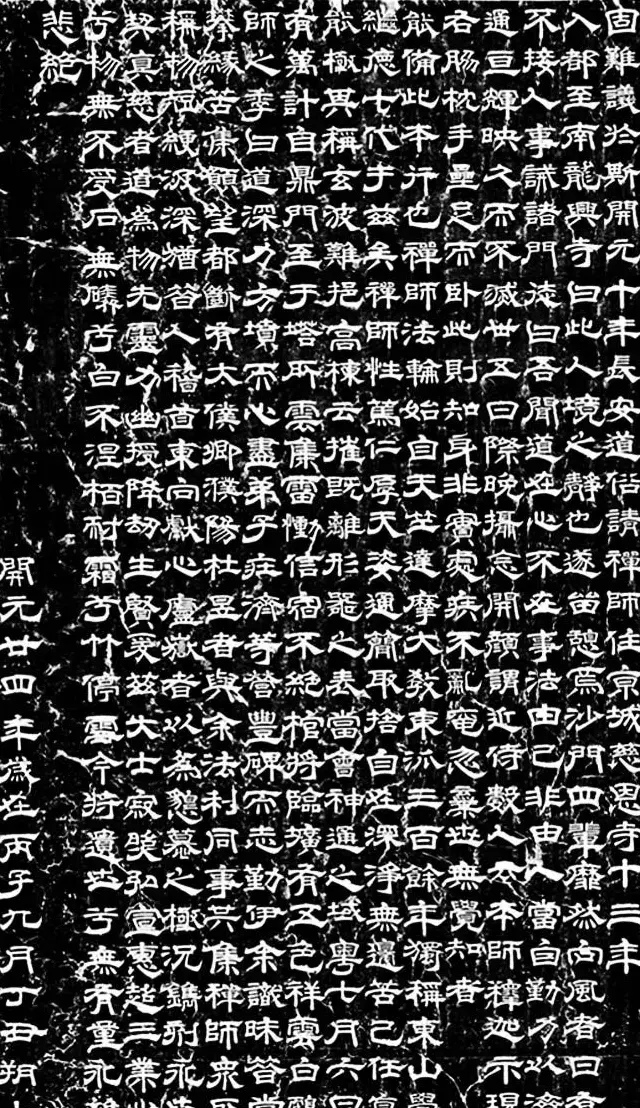 固難議於斯開元十年長安道俗請禪師住京城慈恩寺十三年
入都至南龍興寺曰此人境之靜也遂留憩焉沙門四輩靡然向風者日有
不接人事誡諸門徒曰吾聞道在心不在事法由己非由人當自勤力以濟
通亘輝映久而不滅廿五日際晚攝念開顏謂近侍數人本師釋迦示現
右肠枕手壘足而卧此則知身非實處疾不亂奄忽棄世無覺知者
能備此本行也禪師法輪始自天竺達摩大教東派三百餘年獨稱東山學
繼德七代于茲矣禪師性篤仁厚天姿通簡取捨自在深淨無邊苦己任真
能極其稱玄波難挹高棟云摧既離形器之表當會神通之域粵七月六日
有萬計自鼎門至于塔所雲集雷慟信宿不絕棺將臨壙有五色祥雲白鶴
師之季曰道深力方墳而心盡弟子在濟等營豐碑而志勤伊余識昧昔嘗
攀緣苦集顒望都斷有太僕卿濮陽杜昱者與余法利同事共集禪師衆所
稱物綆汲深猶昔人稽首東向獻心廬嶽者以為懇慕之極況鐫刻永
契真慈者道為物先靈力幽授降劫生賢爰茲大士寂默弘宣惠超三業心
兮物無不受石無磷兮白不涅栢耐霜兮竹停雪今將遺世兮無有量永
悲絕
開元廿四年歲在丙子九月丁丑朔